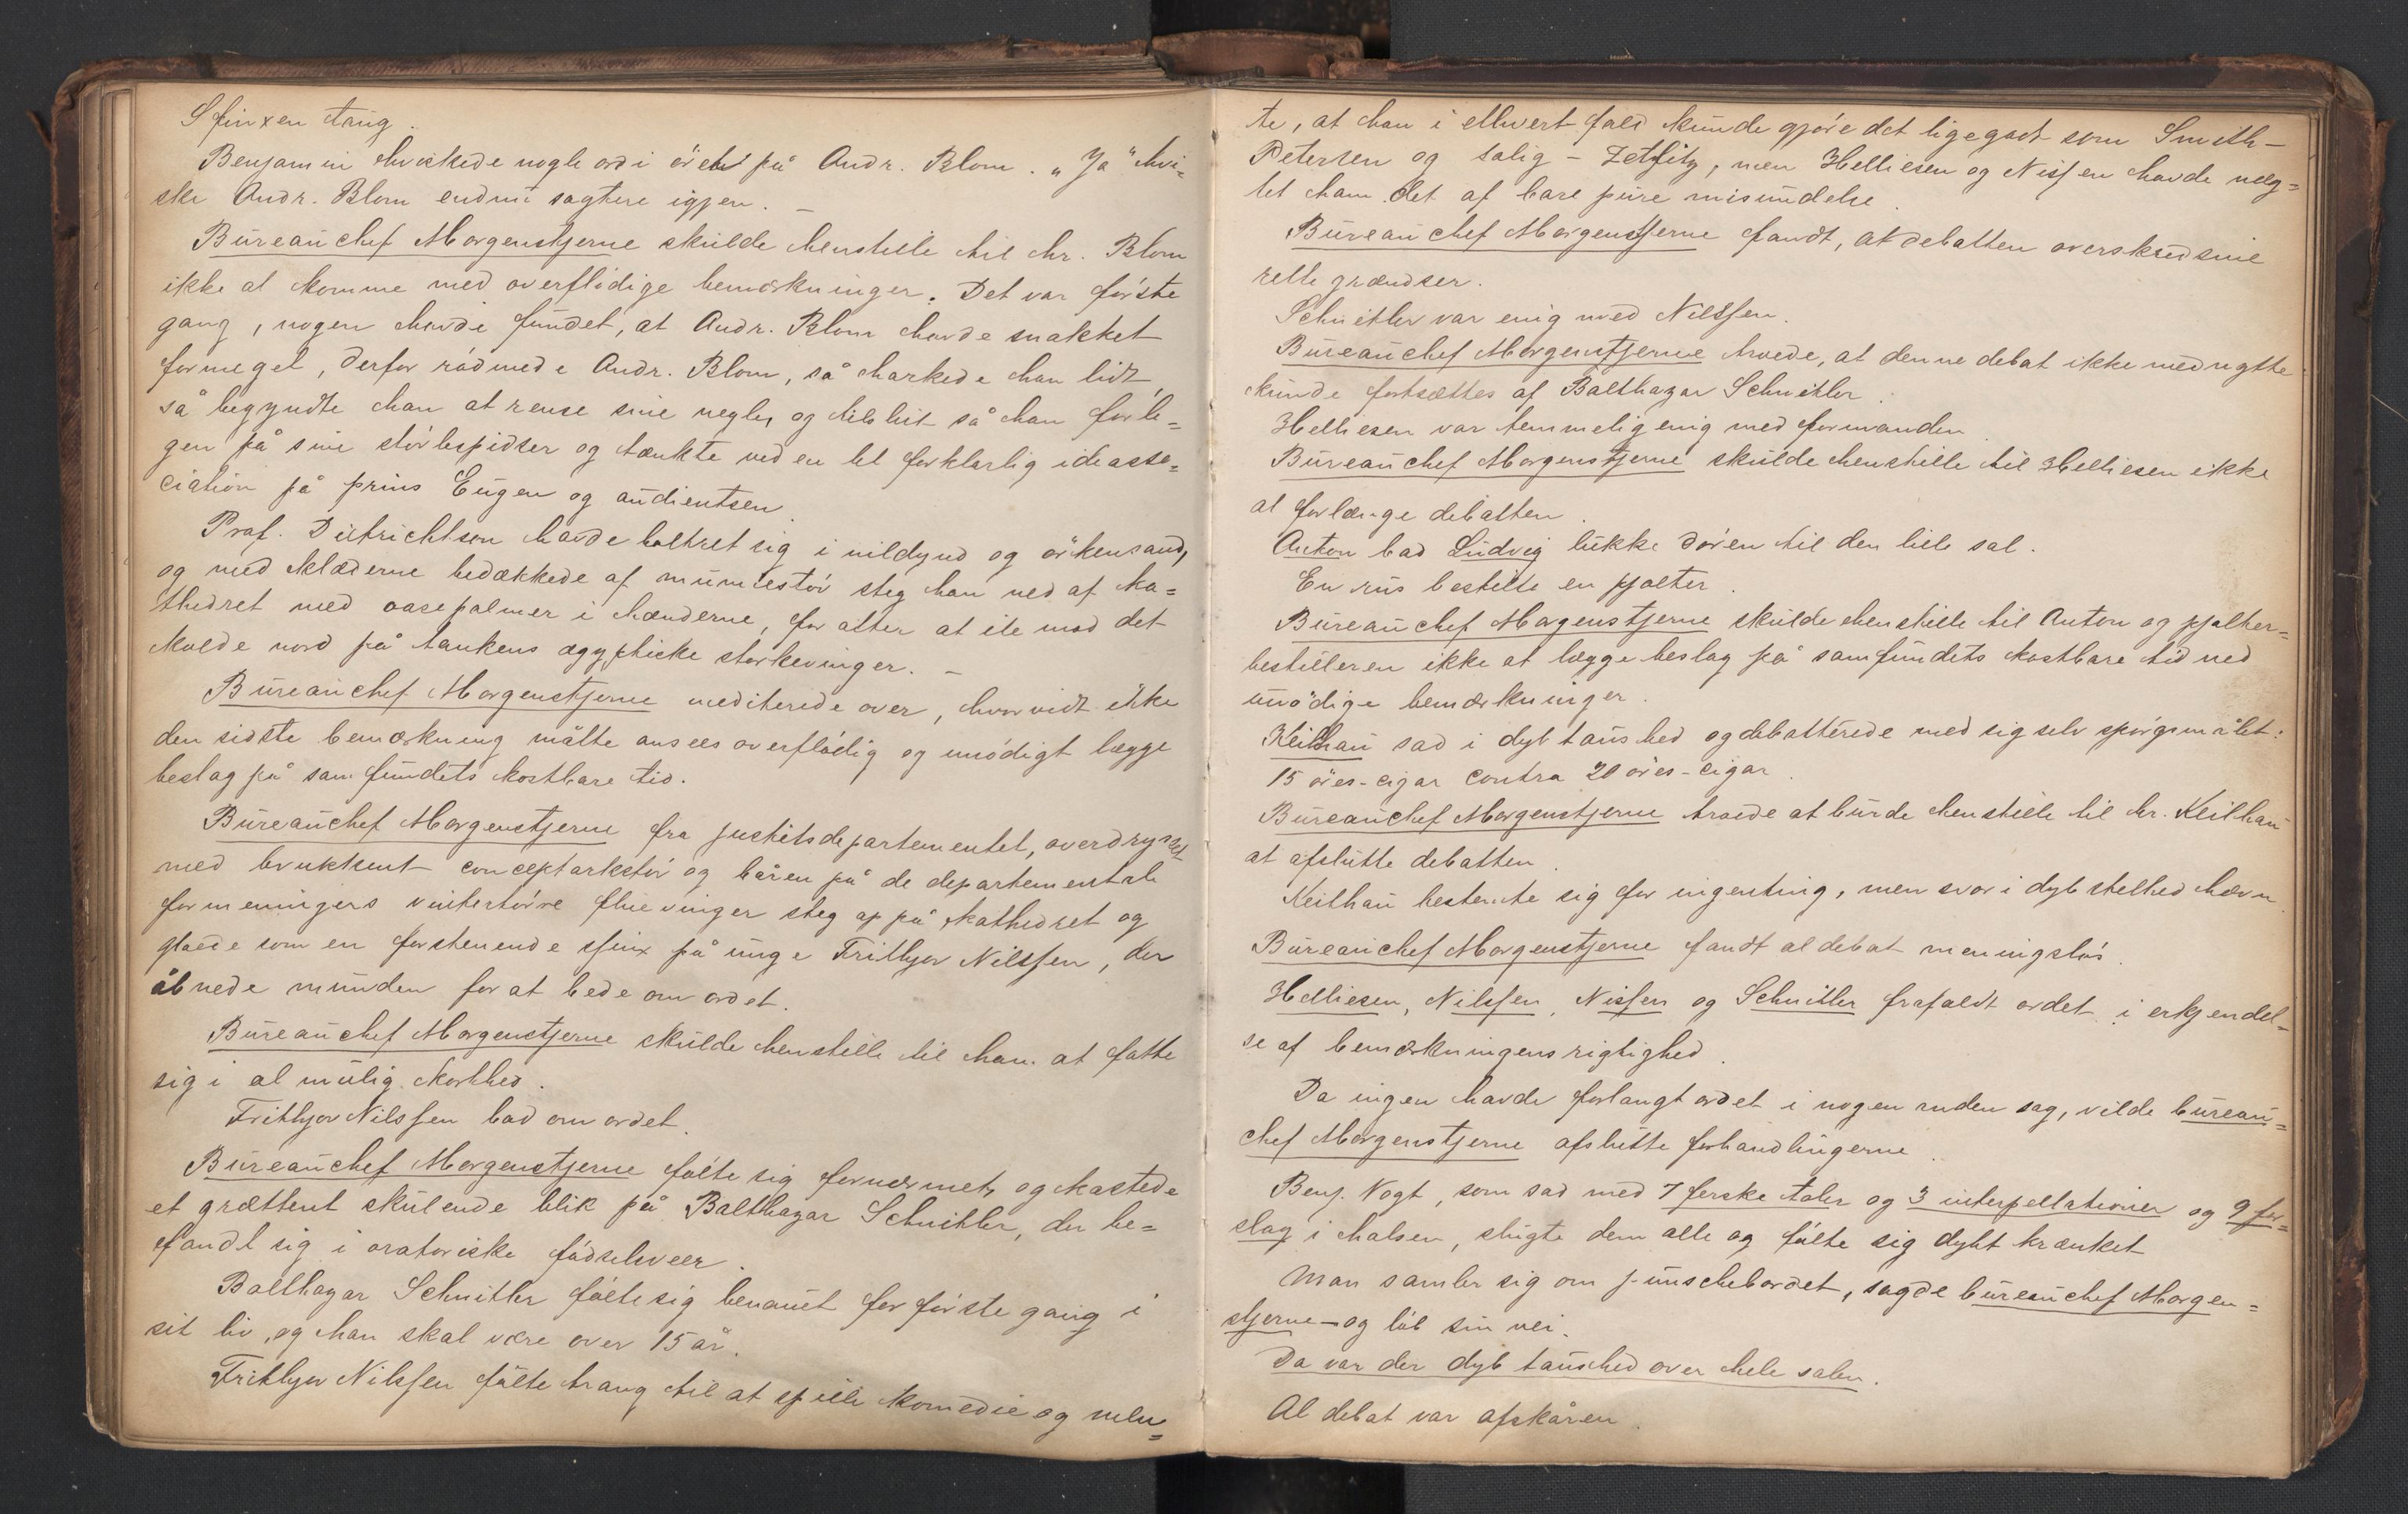 Sfinxen taug.
Benjamin hviskede nogle ord i öret på Andr. Blom. „Ja" hvi=
ske Andr. Blom endnu sagtere igjen. —
Bureauchef Morgenstjerne skulde henstille til hr. Blom
ikke at komme med overflödige bemærkninger. Det var förste
gang, nogen havde fundet, at Andr. Blom havde snakket
formeget, derfor rödmede Andr. Blom, så harkede han lidt,
så begyndte han at rense sine negle, og tilslut så han forle=
gen på sine stövlespidser og tænkte ved en let forklarlig ideasso=
ciation på prins Eugen og audientsen.
Prof. Dietrichtson havde boltret sig i nildynd og örkensand,
og med klæderne bedækkede af mumiestöv steg han ned af ka=
thedret med oasepalmer i hænderne, for atter at ile mod det
kolde nord på tankens ægyptiske storkevinger. —
Bureauchef Morgenstjerne mediterede over, hvorvidt ikke
den sidste bemærkning måtte ansees overflödig og unödigt lægge
beslag på samfundets kostbare tid.
Bureauchef Morgenstjerne fra justitsdepartementet, overdrysset
med brukkent conceptarkstöv og båren på de departementale
formeningers vintertörre fluevinger steg op på kathedret og
gloede som en forstenende sfinx på unge Frithjov Nilssen, der
åbnede munden for at bede om ordet.
Bureauchef Morgenstjerne skulde henstille til ham at fatte
sig i al mulig korthed.
Frithjov Nilssen bad om ordet.
Bureauchef Morgenstjerne fölte sig fornærmet, og kastede
et grættent skulende blik på Balthazar Schnitler, der be=
fandt sig i oratoriske födselsveer.
Balthazar Schnitler fölte sig benauet for förste gang i
sit liv, og han skal være over 15 år.
Frithjov Nilssen fölte trang til at spille komedie og men=
te, at han i ethvert fald kunde gjöre det ligegodt som Smith-
Petersen og salig - Zetlitz, men Helliesen og Nissen havde næg=
tet ham det af bare pure misundelse.
Bureauchef Morgenstjerne fandt, at debatten overskred sine
rette grændser.
Schnitler var enig med Nilssen.
Bureauchef Morgenstjerne troede, at denne debat ikke med nytte
kunde fortsættes af Balthazar Schnitler.
Helliesen var temmelig enig med formanden.
Bureauchef Morgenstjerne skulde henstille til Helliesen ikke
at forlænge debatten.
Anton bad Ludvig lukke dören til den lille sal.
En rus bestilte en pjolter.
Bureauchef Morgenstjerne skulde henstille til Anton og pjolter=
bestilleren ikke at lægge beslag på samfundets kostbare tid ved
unödige bemærkninger.
Keilhau sad i dyb taushed og debatterede med sig selv spörgsmålet:
15 öres-cigar contra 20 öres-cigar.
Bureauchef Morgenstjerne troede at burde henstille til hr. Keilhau
at afslutte debatten.
Keilhau bestemte sig for ingenting, men svor i dyb stilhed hævn.
Bureauchef Morgenstjerne fandt al debat meningslös.
Helliesen, Nilssen, Nissen og Schnitler frafaldt ordet i erkjendel=
se af bemærkningens rigtighed.
Da ingen havde forlangt ordet i nogen anden sag, vilde bureau=
chef Morgenstjerne afslutte forhandlingerne.
Benj. Vogt, som sad med 7 ferske taler og 3 interpellationer og 9 for=
slag i halsen, slugte dem alle og fölte sig dybt krænket
Man samler sig om punschebordet, sagde bureauchef Morgen=
stjerne — og löb sin vei.
Da var der dyb taushed over hele salen.
Al debat var afskåren.